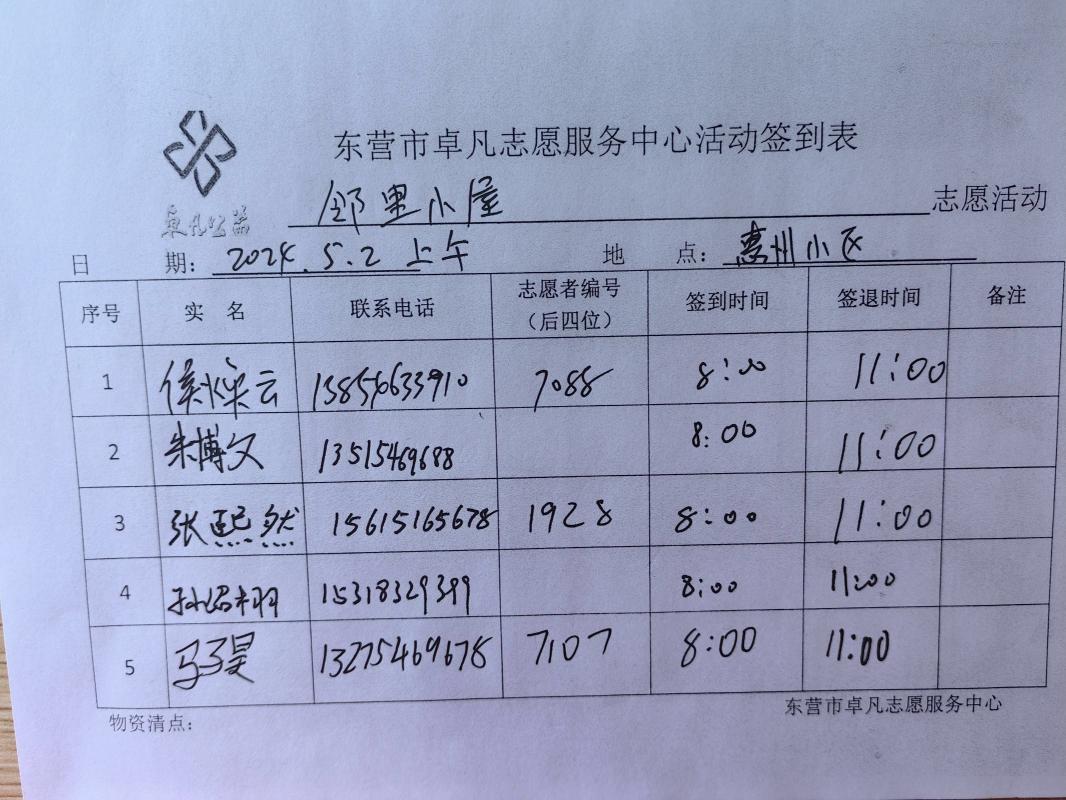 东营市卓凡志愿服务中心活动签到表
卓凡公益
邻里小屋 志愿活动
日 期: 2024.5.2 上午 地 点: 惠州小区
序号 实 名 联系电话 志愿者编号（后四位） 签到时间 签退时间 备注
1 侯燦云 13854633910 7088 8:00 11:00
2 朱博文 13515469688 8:00 11:00
3 张熙然 15615165678 1928 8:00 11:00
4 孙 15318329399 8:00 11:00
5 马子昊 13275469678 7107 8:00 11:00
物资清点:
东营市卓凡志愿服务中心